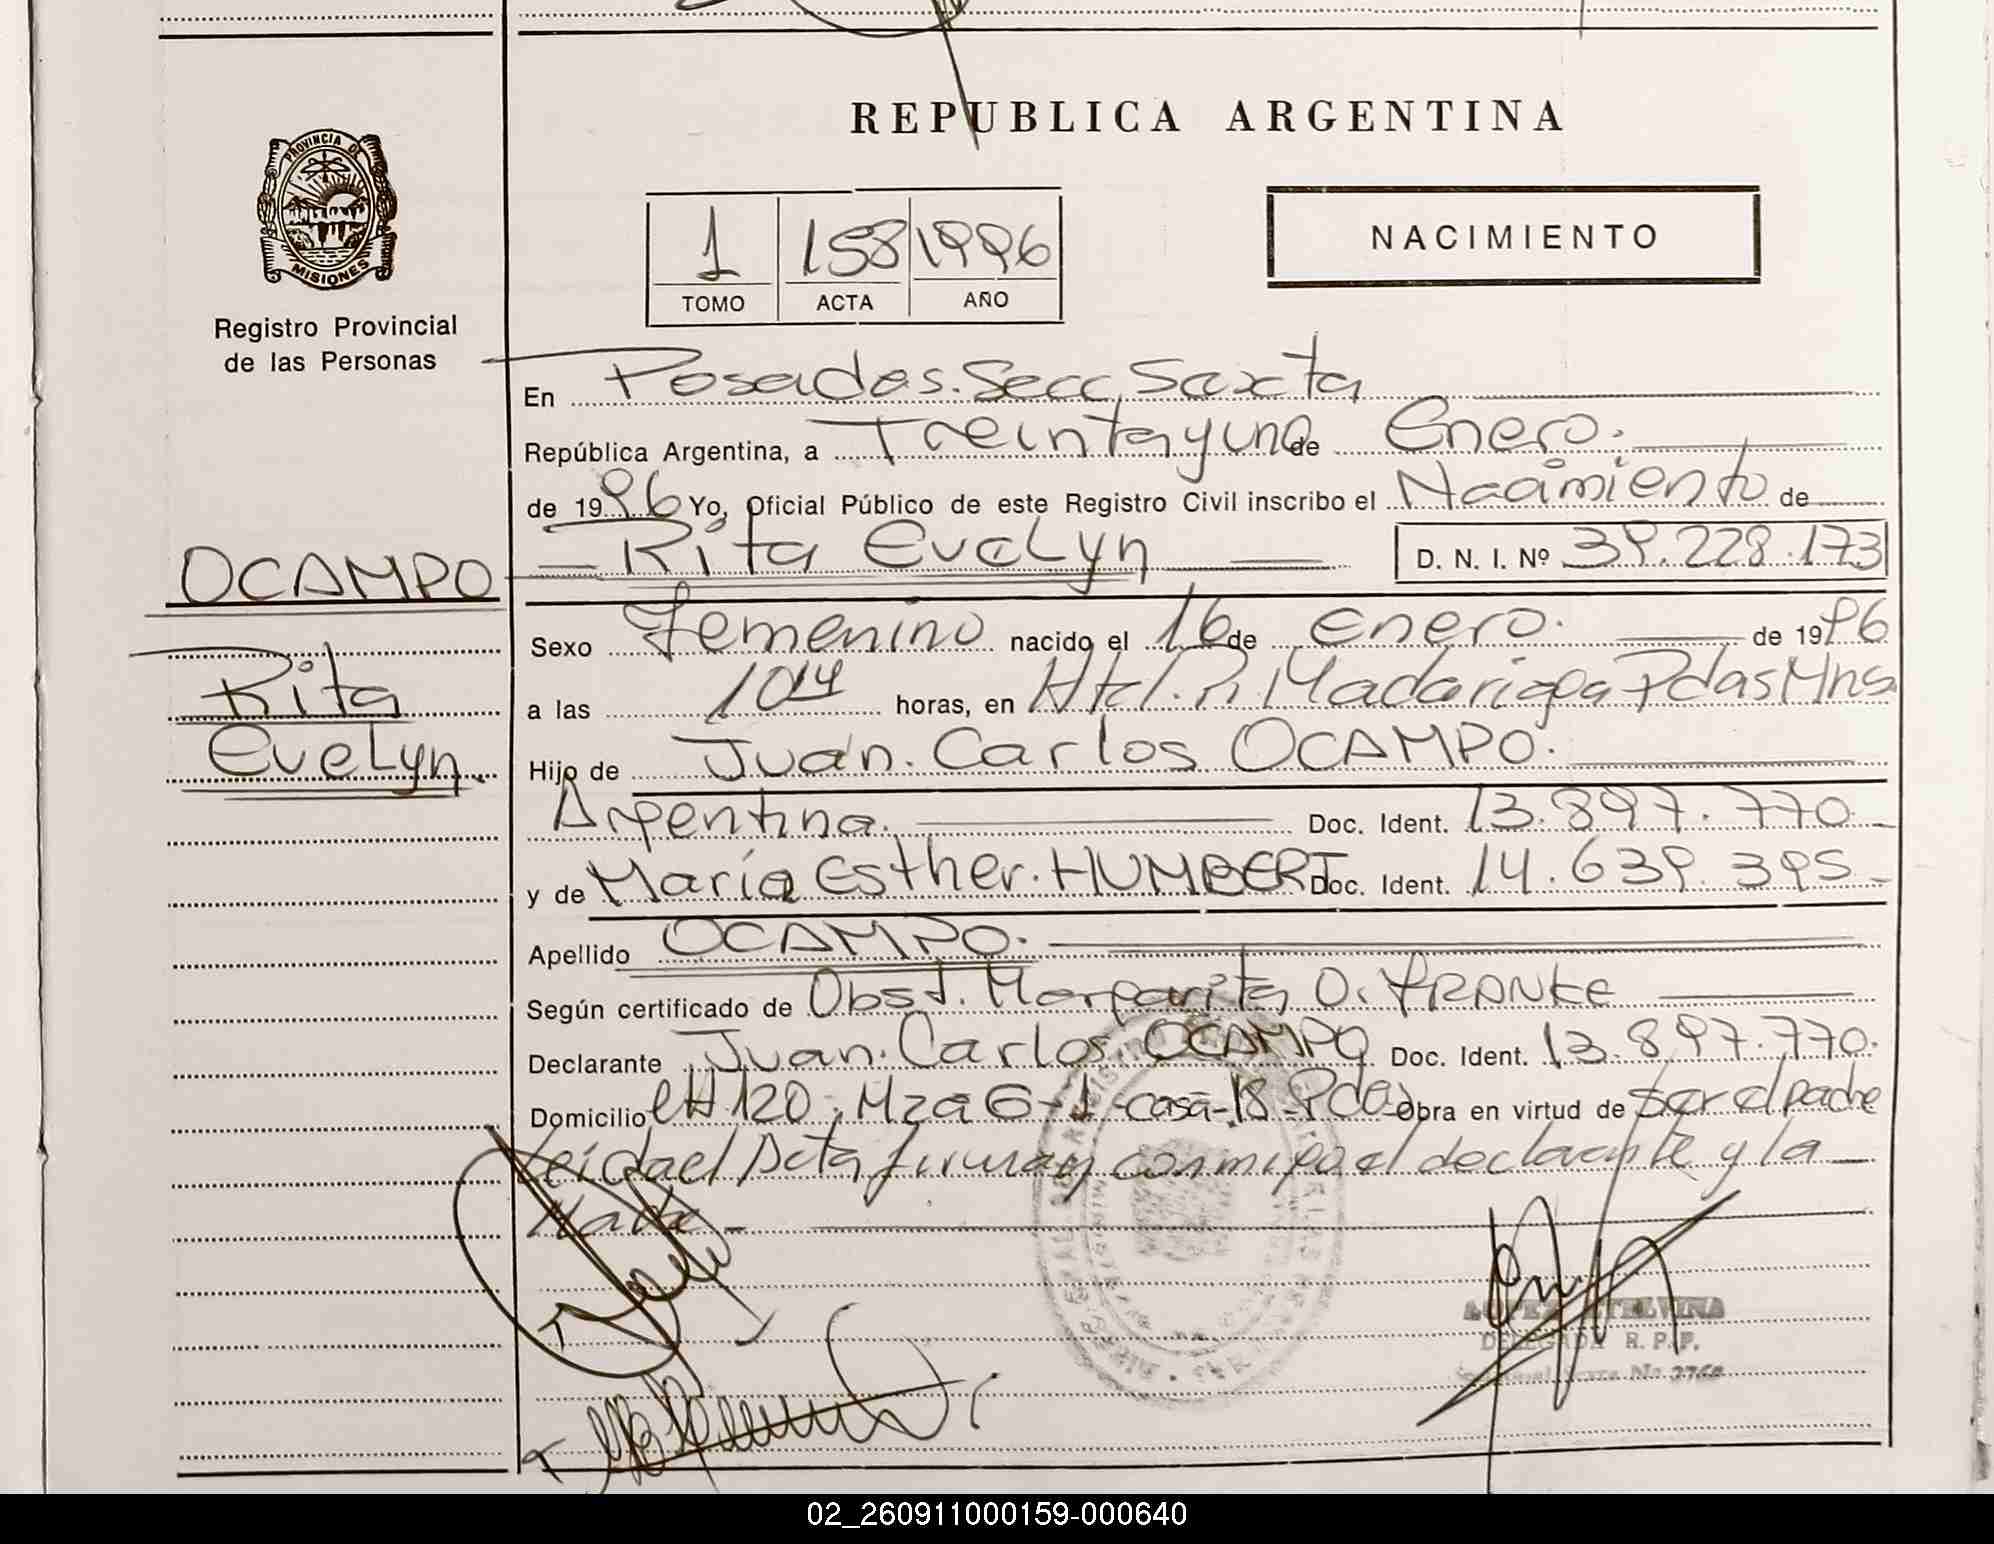 REPUBLICA ARGENTINA
PROVINCIA DE
MISIONES
Registro Provincial
de las Personas
1 158 1996
TOMO ACTA AÑO
NACIMIENTO
En Posadas. Secc. Sexta
República Argentina, a Treinta y uno de Enero.
de 1996 Yo, Oficial Público de este Registro Civil inscribo el Nacimiento de
Rita Evelyn D. N. I. Nº 39.228.173
OCAMPO
Rita
Evelyn.
Sexo Femenino nacido el 16 de enero. de 1996
a las 10 14 horas, en Htal. R. Madariaga Pdas Mns.
Hijo de Juan. Carlos OCAMPO.
Argentina. Doc. Ident. 13.897.770
y de María Esther. HUMBERT Doc. Ident. 14.639.395
Apellido OCAMPO.
Según certificado de Obst. Margarita O. FRANKE
Declarante Juan. Carlos OCAMPO Doc. Ident. 13.897.770.
Domicilio CH 120. Mza G-1-casa-18-Pdas Obra en virtud de ser el padre
Leida el Acta firman conmigo el declarante y la
Madre
LOPEZ ETELVINA
DELEGADA R. P. P.
02_260911000159-000640